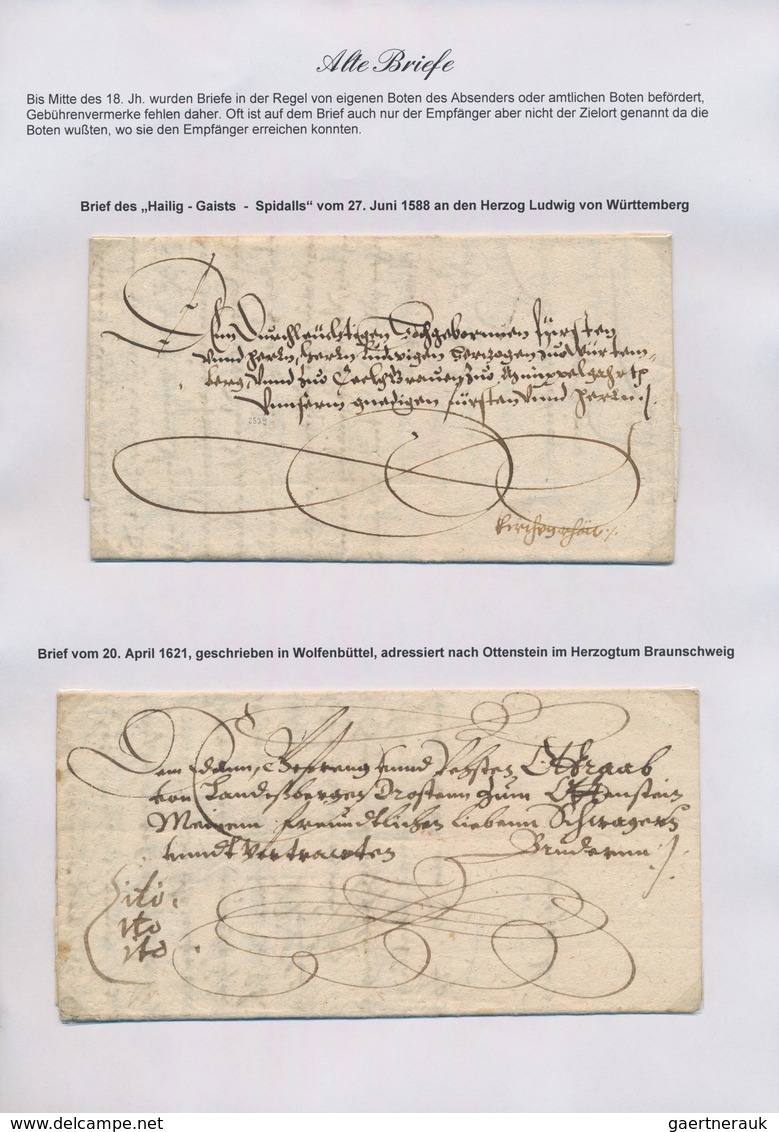 Alte Briefe
Bis Mitte des 18. Jh. wurden Briefe in der Regel von eigenen Boten des Absenders oder amtlichen Boten befördert,
Gebührenvermerke fehlen daher. Oft ist auf dem Brief auch nur der Empfänger aber nicht der Zielort genannt da die
Boten wußten, wo sie den Empfänger erreichen konnten.
Brief des „Hailig - Gaists - Spidalls“ vom 27. Juni 1588 an den Herzog Ludwig von Württemberg
Dem Durchleüchtigen Hochgebornnen Fürsten
vnnd Herrn, Herrn Ludwigen Hertzogen zuo Würtem-
berg, vnnd zuo
vnnserm gnedigen Fürsten vnnd Herrn
Brief vom 20. April 1621, geschrieben in Wolfenbüttel, adressiert nach Ottenstein im Herzogtum Braunschweig
Dem Edlenn, Gestreng vnnd Vehsten Ottraab
von Landeßbergen Drostenn zum Ottenstein
Meinem freundtlichen liebenn Schwagern
vnndt vertrawten Brudernn
Cito.
ito
ito
delcampe.net
gaertnerauk